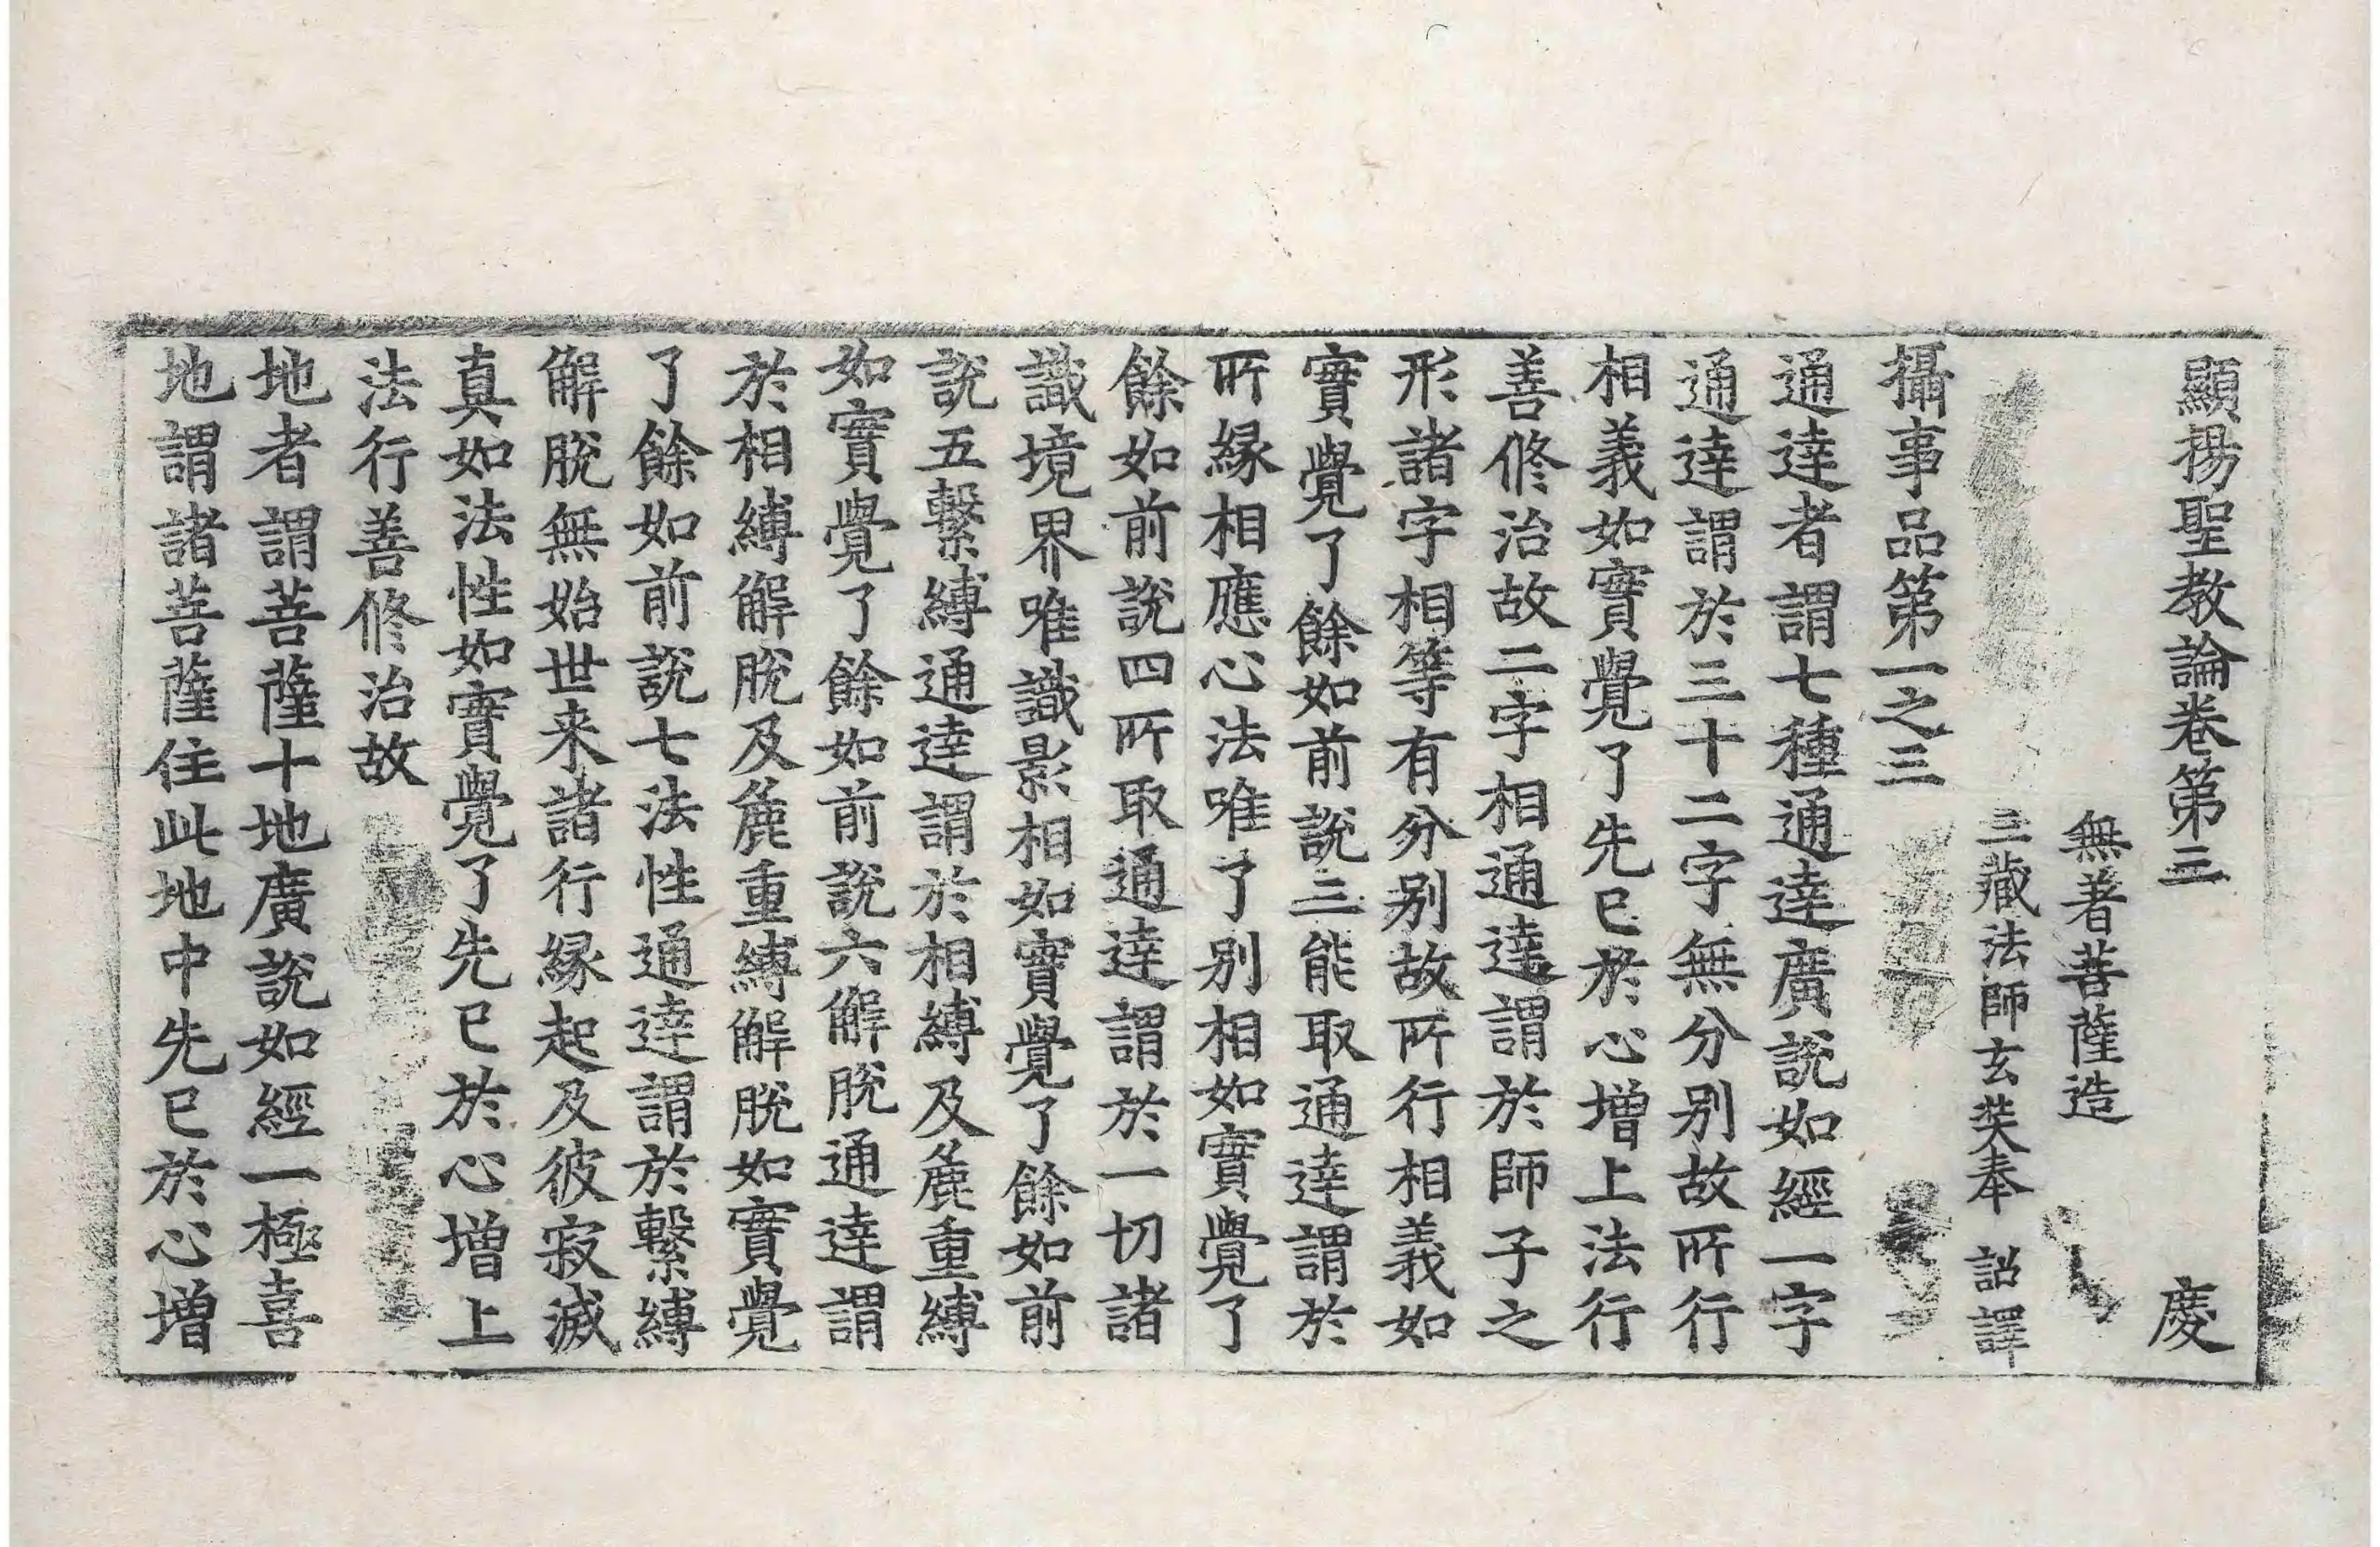 顯揚聖教論卷第三 慶
無著菩薩造
三藏法師玄奘奉 詔譯
攝事品第一之三
通達者謂七種通達廣說如經一字
通達謂於三十二字無分別故所行
相義如實覺了先已於心增上法行
善修治故二字相通達謂於師子之
形諸字相等有分別故所行相義如
實覺了餘如前說三能取通達謂於
所緣相應心法唯了別相如實覺了
餘如前說四所取通達謂於一切諸
識境界唯識影相如實覺了餘如前
說五繫縛通達謂於相縛及麁重縛
如實覺了餘如前說六解脫通達謂
於相縛解脫及麁重縛解脫如實覺
了餘如前說七法性通達謂於繫縛
解脫無始世来諸行緣起及彼寂滅
真如法性如實覺了先已於心增上
法行善修治故
地者謂菩薩十地廣說如經一極喜
地謂諸菩薩住此地中先已於心增